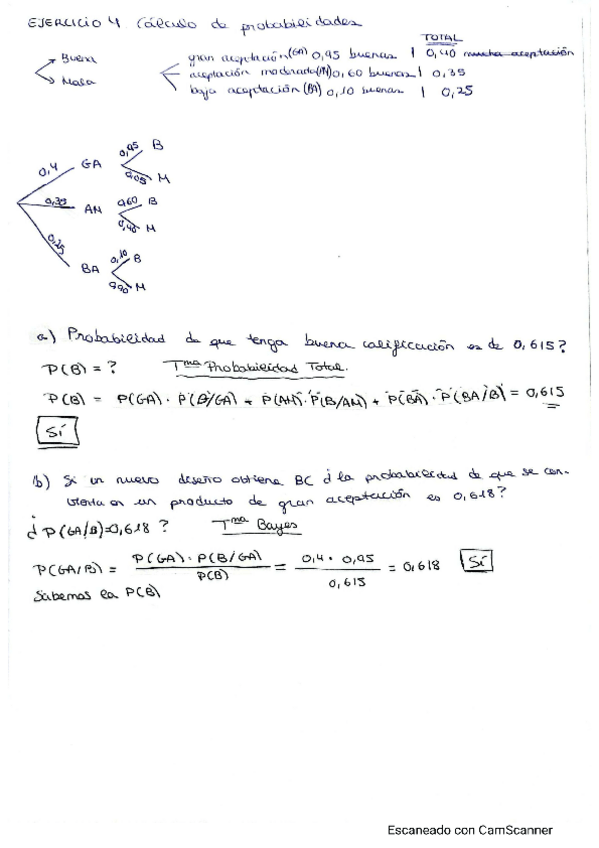 EJERCICIO 4 Cálculo de probabilidades
TOTAL
Buena
Mala
gran aceptación (GA) 0,95 buenas | 0,40 mucha aceptación
aceptación moderada (AM) 0,60 buenas | 0,35
baja aceptación (BA) 0,10 buenas | 0,25
0,4 GA 0,95 B
0,05 M
0,35 AM 0,60 B
0,40 M
0,25 BA 0,10 B
0,90 M
a) Probabilidad de que tenga buena calificación es de 0,615?
P(B) = ? Tma Probabilidad Total.
P(B) = P(GA) · P(B/GA) + P(AM) · P(B/AM) + P(BA) · P(BA/B) = 0,615
Sí
b) Si un nuevo diseño obtiene BC ¿la probabilidad de que se con-
vierta en un producto de gran aceptación es 0,618?
¿P(GA/B)=0,618? Tma Bayes
P(GA/B) = P(GA) · P(B/GA) / P(B) = 0,4 · 0,95 / 0,615 = 0,618 Sí
Sabemos la P(B)
Escaneado con CamScanner